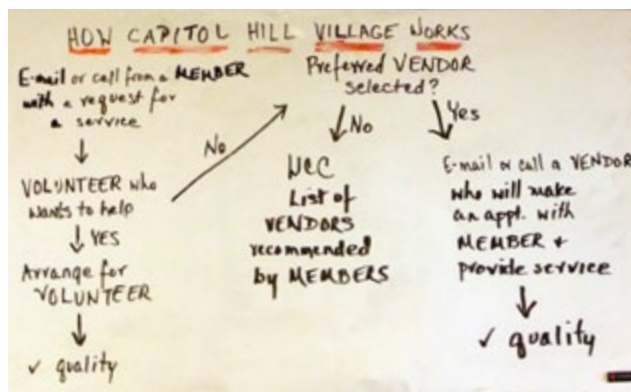 HOW CAPITOL HILL VILLAGE WORKS
E-mail or call from a MEMBER
with a request for
a service
VOLUNTEER who
wants to help
YES
Arrange for
VOLUNTEER
✓ quality
No
Preferred VENDOR
selected?
No
List of
VENDORS
recommended
by MEMBERS
Yes
E-mail or call a VENDOR
who will make
an appt. with
MEMBER +
provide service
✓ quality